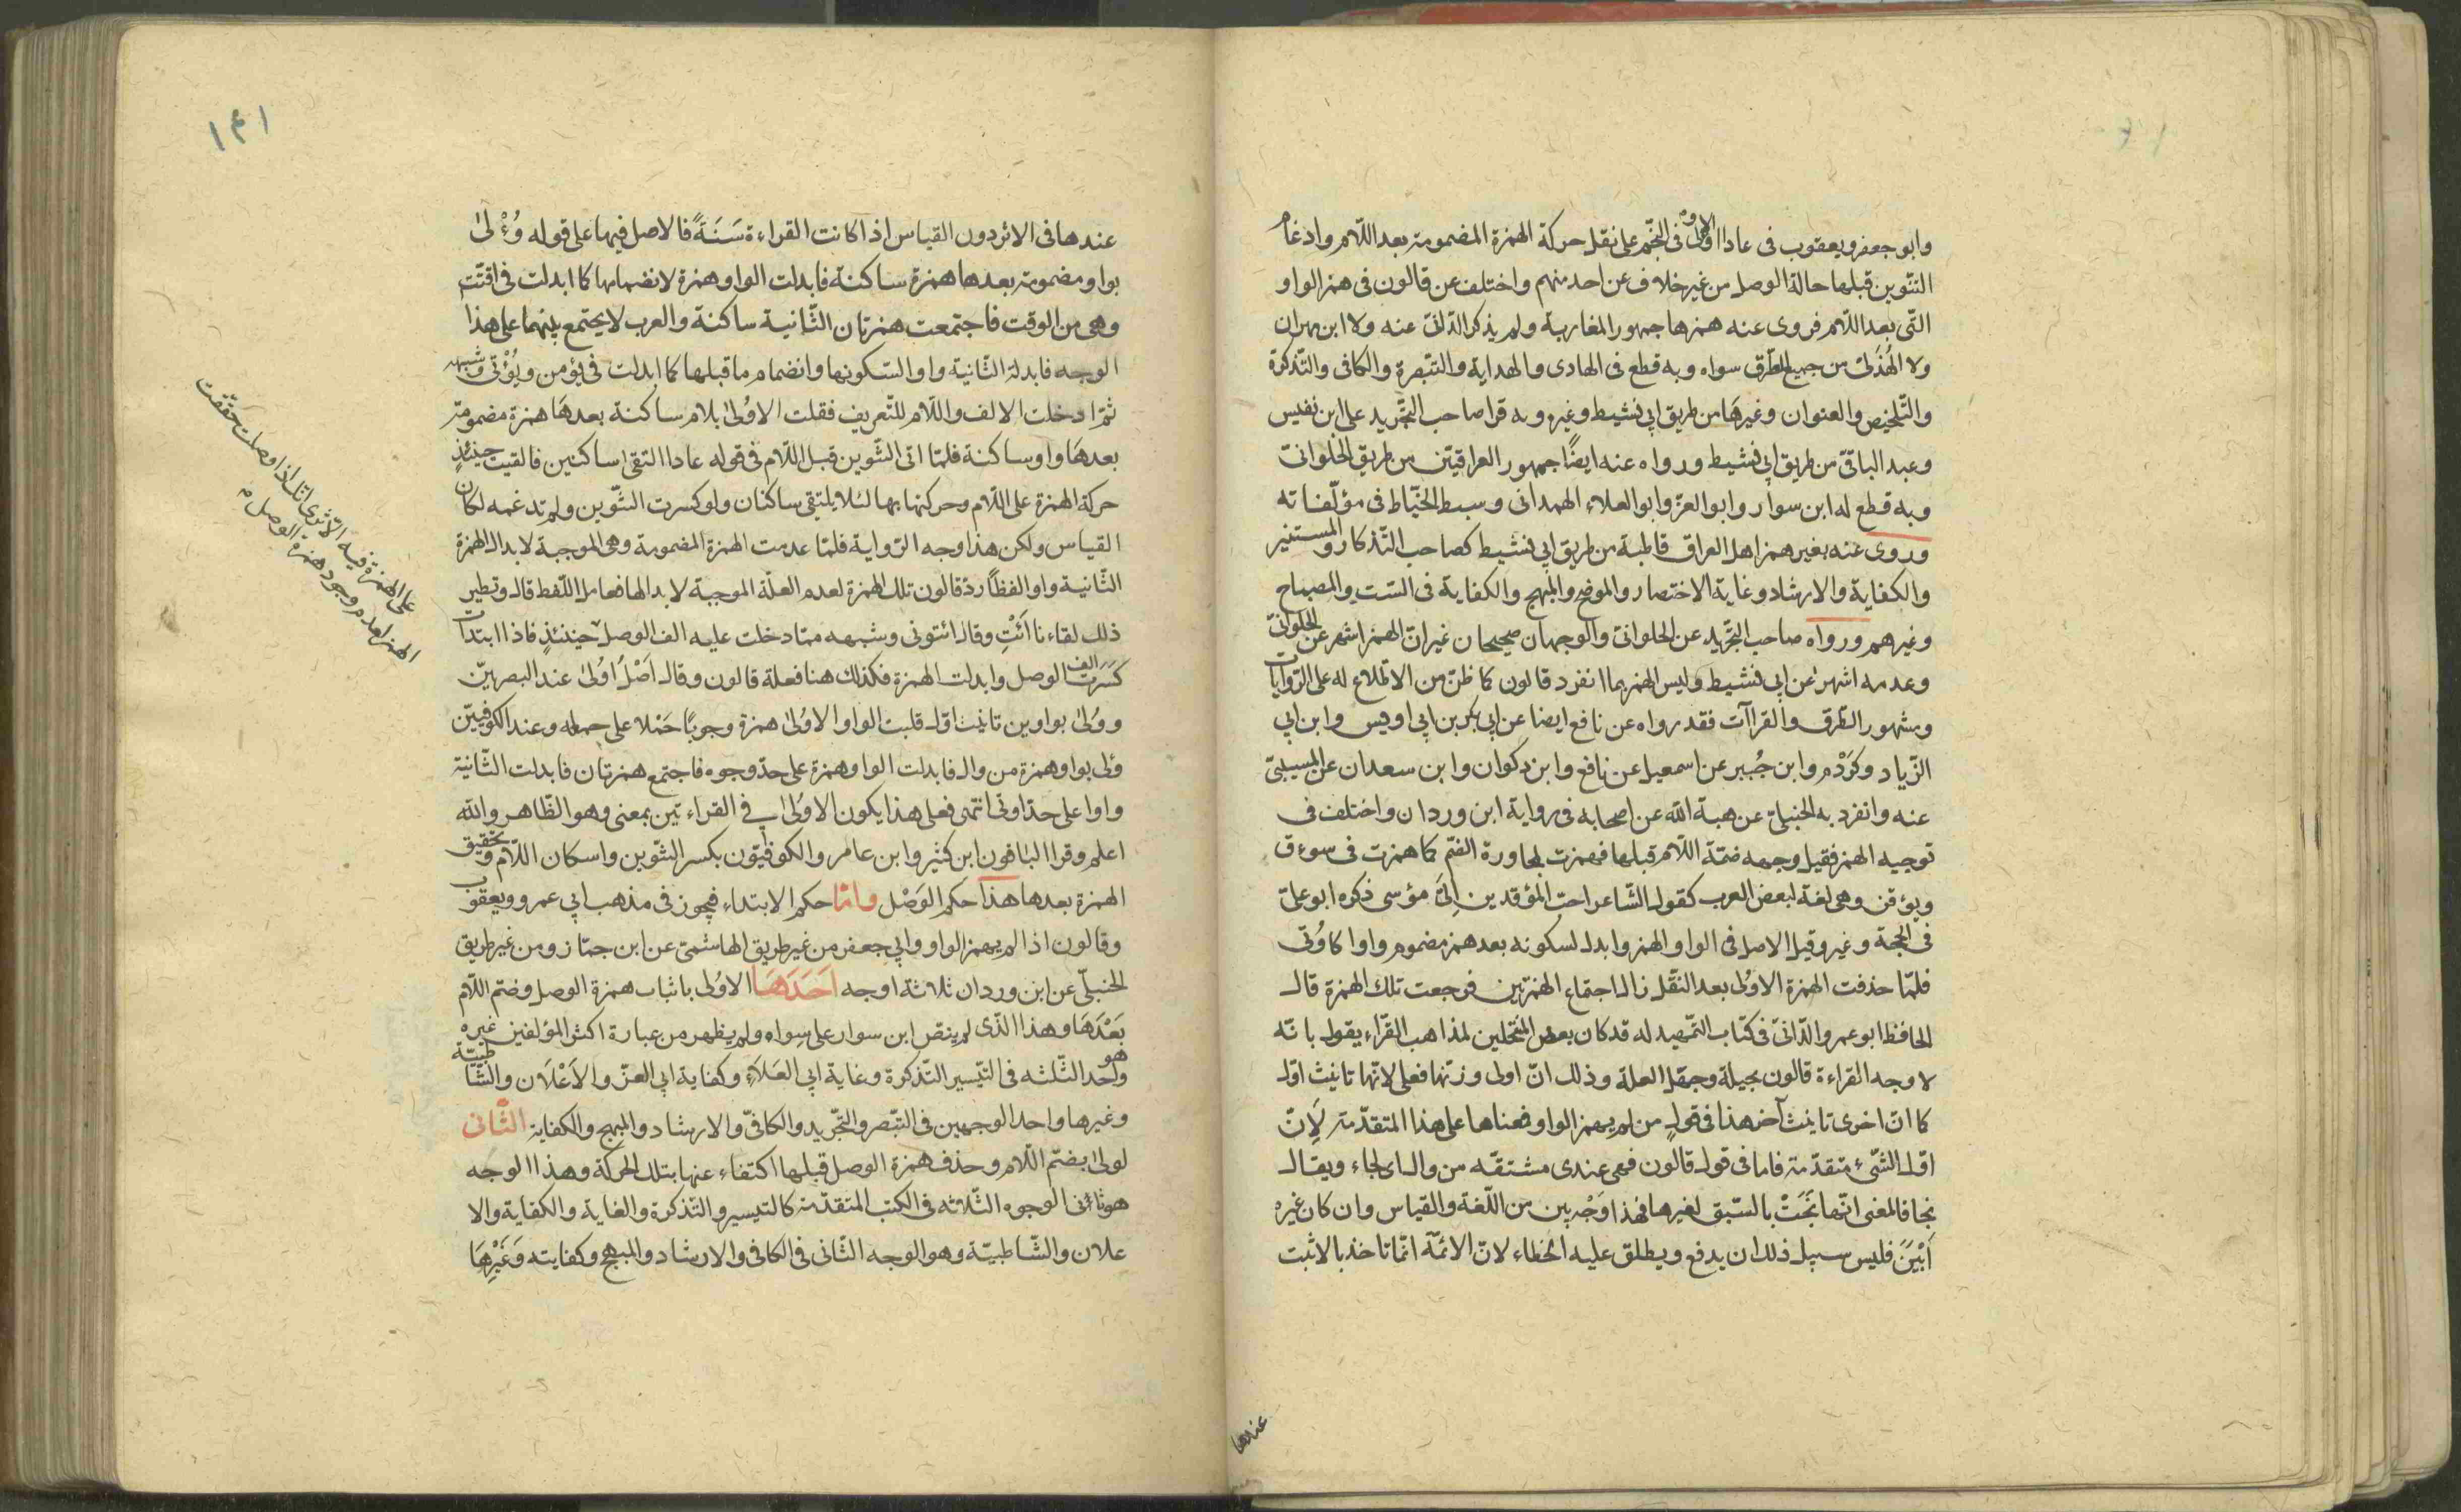 وابو جعفر ويعقوب فى عادا الاولى فى النّجم على نقل حركة الهمزة المضمومة بعد اللّام وادغام
التّنوين قبلها حالة الوصل من غير خلاف عن احد منهم واختلف عن قالون فى همز الواو
التّى بعد اللّام فروى عنه همزها جمهور المغاربة ولم يذكر الدّانىّ عنه ولا ابن مهران
ولا الهُذَلىّ من جميع الطّرق سواه وبه قطع فى الهادى والهداية والتّبصرة والكافى والتّذكرة
والتّلخيص والعنوان وغيرها من طريق ابى نشيط وغيره وبه قرا صاحب التّجريد على ابن نفيس
وعبد الباقىّ من طريق ابى نشيط ورواه عنه ايضًا جمهور العراقيّين من طريق الحلوانىّ
وبه قطع له ابن سوار وابو العزّ وابو العلاء الهمدانى وسبط الخيّاط فى مؤلّفاته
وروى عنه بغير همز اهل العراق قاطبة من طريق ابى نشيط كصاحب التّذكار والمستنير
والكفاية والارشاد وغاية الاختصار والموضح والمبهج والكفاية فى السّت والمصباح
وغيرهم ورواه صاحب التّجريد عن الحلوانىّ والوجهان صحيحان غير انّ الهمز اشهر عن الحلوانىّ
وعدمه اشهر عن ابى نشيط وليس الهمز بما انفرد قالون كما ظنّ من لا اطّلاع له على الرّوايات
ومشهور الطّرق والقراآت فقد رواه عن نافع ايضا عن ابى بكر بن ابى اويس وابن ابى
الزّياد وكَرْدَم وابن جُبير عن اسمعيل عن نافع وابن ذكوان وابن سعدان عن المسيبىّ
عنه وانفرد به الحنبلىّ عن هبة الله عن اصحابه فى رواية ابن وردان واختلف فى
توجيه الهمز فقيل وجهه ضمّة اللّام قبلها فهمزت لمجاورة الضّم كما همزت فى سوءق
ويؤقن وهى لغة لبعض العرب كقول الشّاعر احبّ المؤقدين اِلىَّ مؤسى ذكره ابو علىّ
فى الحجة وغيره وقيل الاصل فى الواو الهمز وابدل لسكونه بعد همز مضموم واوا كاوُتى
فلمّا حذفت الهمزة الاوُلى بعد النّقل زال اجتماع الهمزتين فرجعت تلك الهمزة قال
الحافظ ابو عمرو الدّانىّ فى كتاب التّمهيد له قد كان بعض المنتحلين لمذاهب القرّاء يقول بانّه
لا وجه القراءة قالون بحيلة وجهل العلة وذلك انّ اولى وزنها فعلى لانّها تانيث اوّل
كما انّ اخرى تانيث آخر هذا فى قول من لم يهمز الواو فمعناها على هذا المتقدّمة لِانّ
اوّل الشّئ متقدّمة فاما فى قول قالون فهى عندى مشتقّه من وال اى لجاء ويقال
نجا فالمعنى انّها نَجَتْ بالسّبق لغيرها فهذا وَجْه بين من اللّغة والقياس وان كان غيره
اَبْيَنَ فليس سبيل ذلك ان يدفع ويطلق عليه الخطاء لانّ الائمّة انّما تاخذ بالاثبت
عندها
١٤١
عندها فى الاثر دون القياس اذا كانت القراءة سَنَةً فالاصل فيها على قوله وُءْلىٰ
بواو مضمومة بعدها همزة ساكنة فابدلت الواو همزة لانضمامها كما ابدلت فى اقتّت
وهى من الوقت فاجتمعت همزتان الثّانية ساكنة والعرب لا يجتمع بينهما على هذا
الوجه فابدلت الثّانية واو السّكونها وانضمام ما قبلها كما ابدلت فى يؤمن ويُؤْتى وشبهه
ثمّ ادخلت الالف واللّام للتّعريف فقلت الاوُلىٰ بلام ساكنة بعدهَا همزة مضمومة
بعدهَا واو ساكنة فلمّا اتى التّنوين قبل اللّام فى قوله عادا التقى ساكنين فالقيت حينئذٍ
حركة الهمزة على اللّام وحركتها بها لئلا يلتقى ساكنان ولو كسرت التّنوين ولم تدغمه لكان
القياس ولكن هذا وجه الرّواية فلمّا عدمت الهمزة المضمومة وهى الموجبة لابدال الهمزة
الثّانية واوا لفظًا ردّ قالون تلك الهمزة لعدم العلّة الموجبة لابدالها فعامل اللّفظ قال ونظير
ذلك لقاءنا اَئْتِ وقال ائتونى وشبهه ممّا دخلت عليه الف الوصل حينئذٍ فاذا ابتدات
كسَرت الف الوصل وابدلت الهمزة فكذلك هنا فعلة قالون وقال اَصْلُ اوُلىٰ عند البصريّين
ووُلىٰ بواوين تانيث اوّل قلبت الواو الاوُلىٰ همزة وجوبًا حَمْلا على جمله وعند الكوفيّين
وئلى بواو وهمزة من وال فابدلت الواو همزة على حدّ وجوه فاجتمع همزتان فابدلت الثّانية
واوا على حدّ اوتى انتهى فعلى هذا يكون الاوُلىٰ فى القراءتين بمعنى وهو الظّاهر والله
اعلم وقرا البَاقون ابن كثير وابن عامر والكوفيّون بكسر التّنوين واسكان اللّام وتحقيق
الهمزة بعدها هذا حكم الوَصْل وامّا حكم الابتداء فيجوز فى مذهب ابى عمرو ويعقوب
وقالون اذا لم يهمز الواو وابى جعفر من غير طريق الهاشمىّ عن ابن جمّاز ومن غير طريق
الحنبلّى عن ابن وردان ثلاثة اوجه اَحَدَهَا الاوُلى باثبات همزة الوصل وضّم اللّام
بَعْدَهَا وهذا الّذى لم ينص ابن سوار على سِواه ولم يظهر من عبارة اكثر المؤلفين غيره
وهو احد الثّلثه فى التيّسير التّذكرة وغاية ابى العَلاَءِ وكفاية ابى العزّ والاَعْلاَن والشّاطبيّة
وغيرها واحد الوجهين فى التّبصر والتّجريد والكافىّ والارشاد والمبهج والكفاية الثّانى
لولىٰ بضّم اللّام وحذف همزة الوصل قبلها اكتفاء عنها بتلك الحركة وهذا الوجه
هو ثانى الوجوه الثّلاثه فى الكتب المتقدّمة كالتيسير والتّذكرة والغاية والكفاية والا
علان والشّاطبيّة وهو الوجه الثّانى فى الكافى والارشاد والمبهج وكفايته وَغَيْرِهَا
على الهمزة فيه الاثرى انك اذا وصلت حققت
الهمز لعدم وجود همزة الوصل م